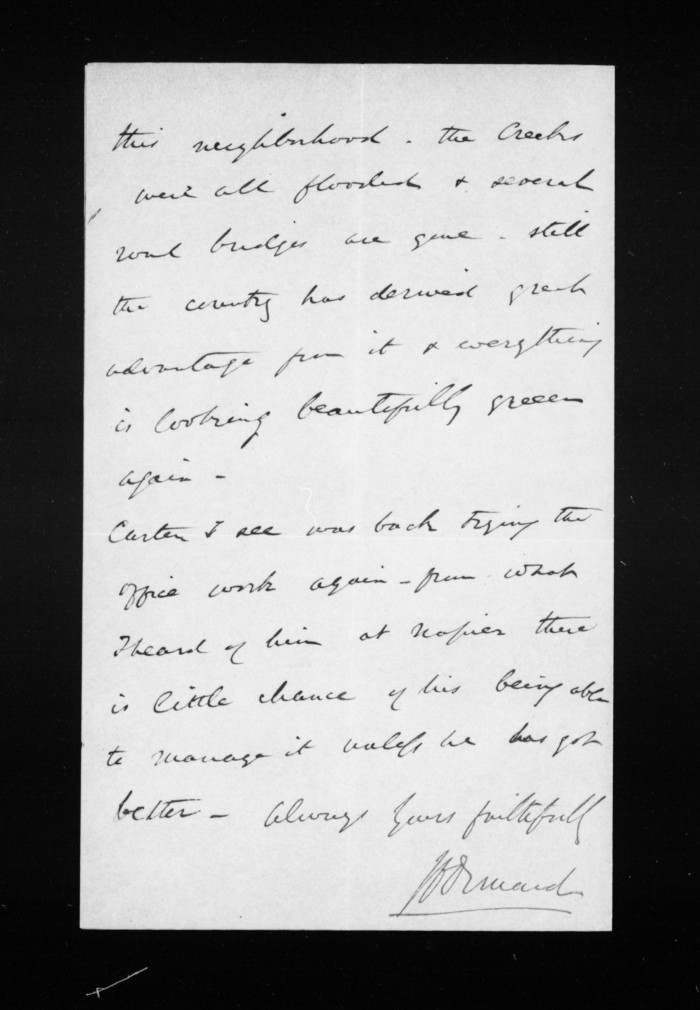 this neighborhood. the Creeks
were all flooded & several
road bridges are gone - still
the country has derived great
advantage from it & everything
is looking beautifully green
again -
Carter I see was back trying the
office work again - from what
I heard of him at Napier there
is little chance of his being able
to manage it unless he has got
better - Always Yours faithfully
J D Ormond